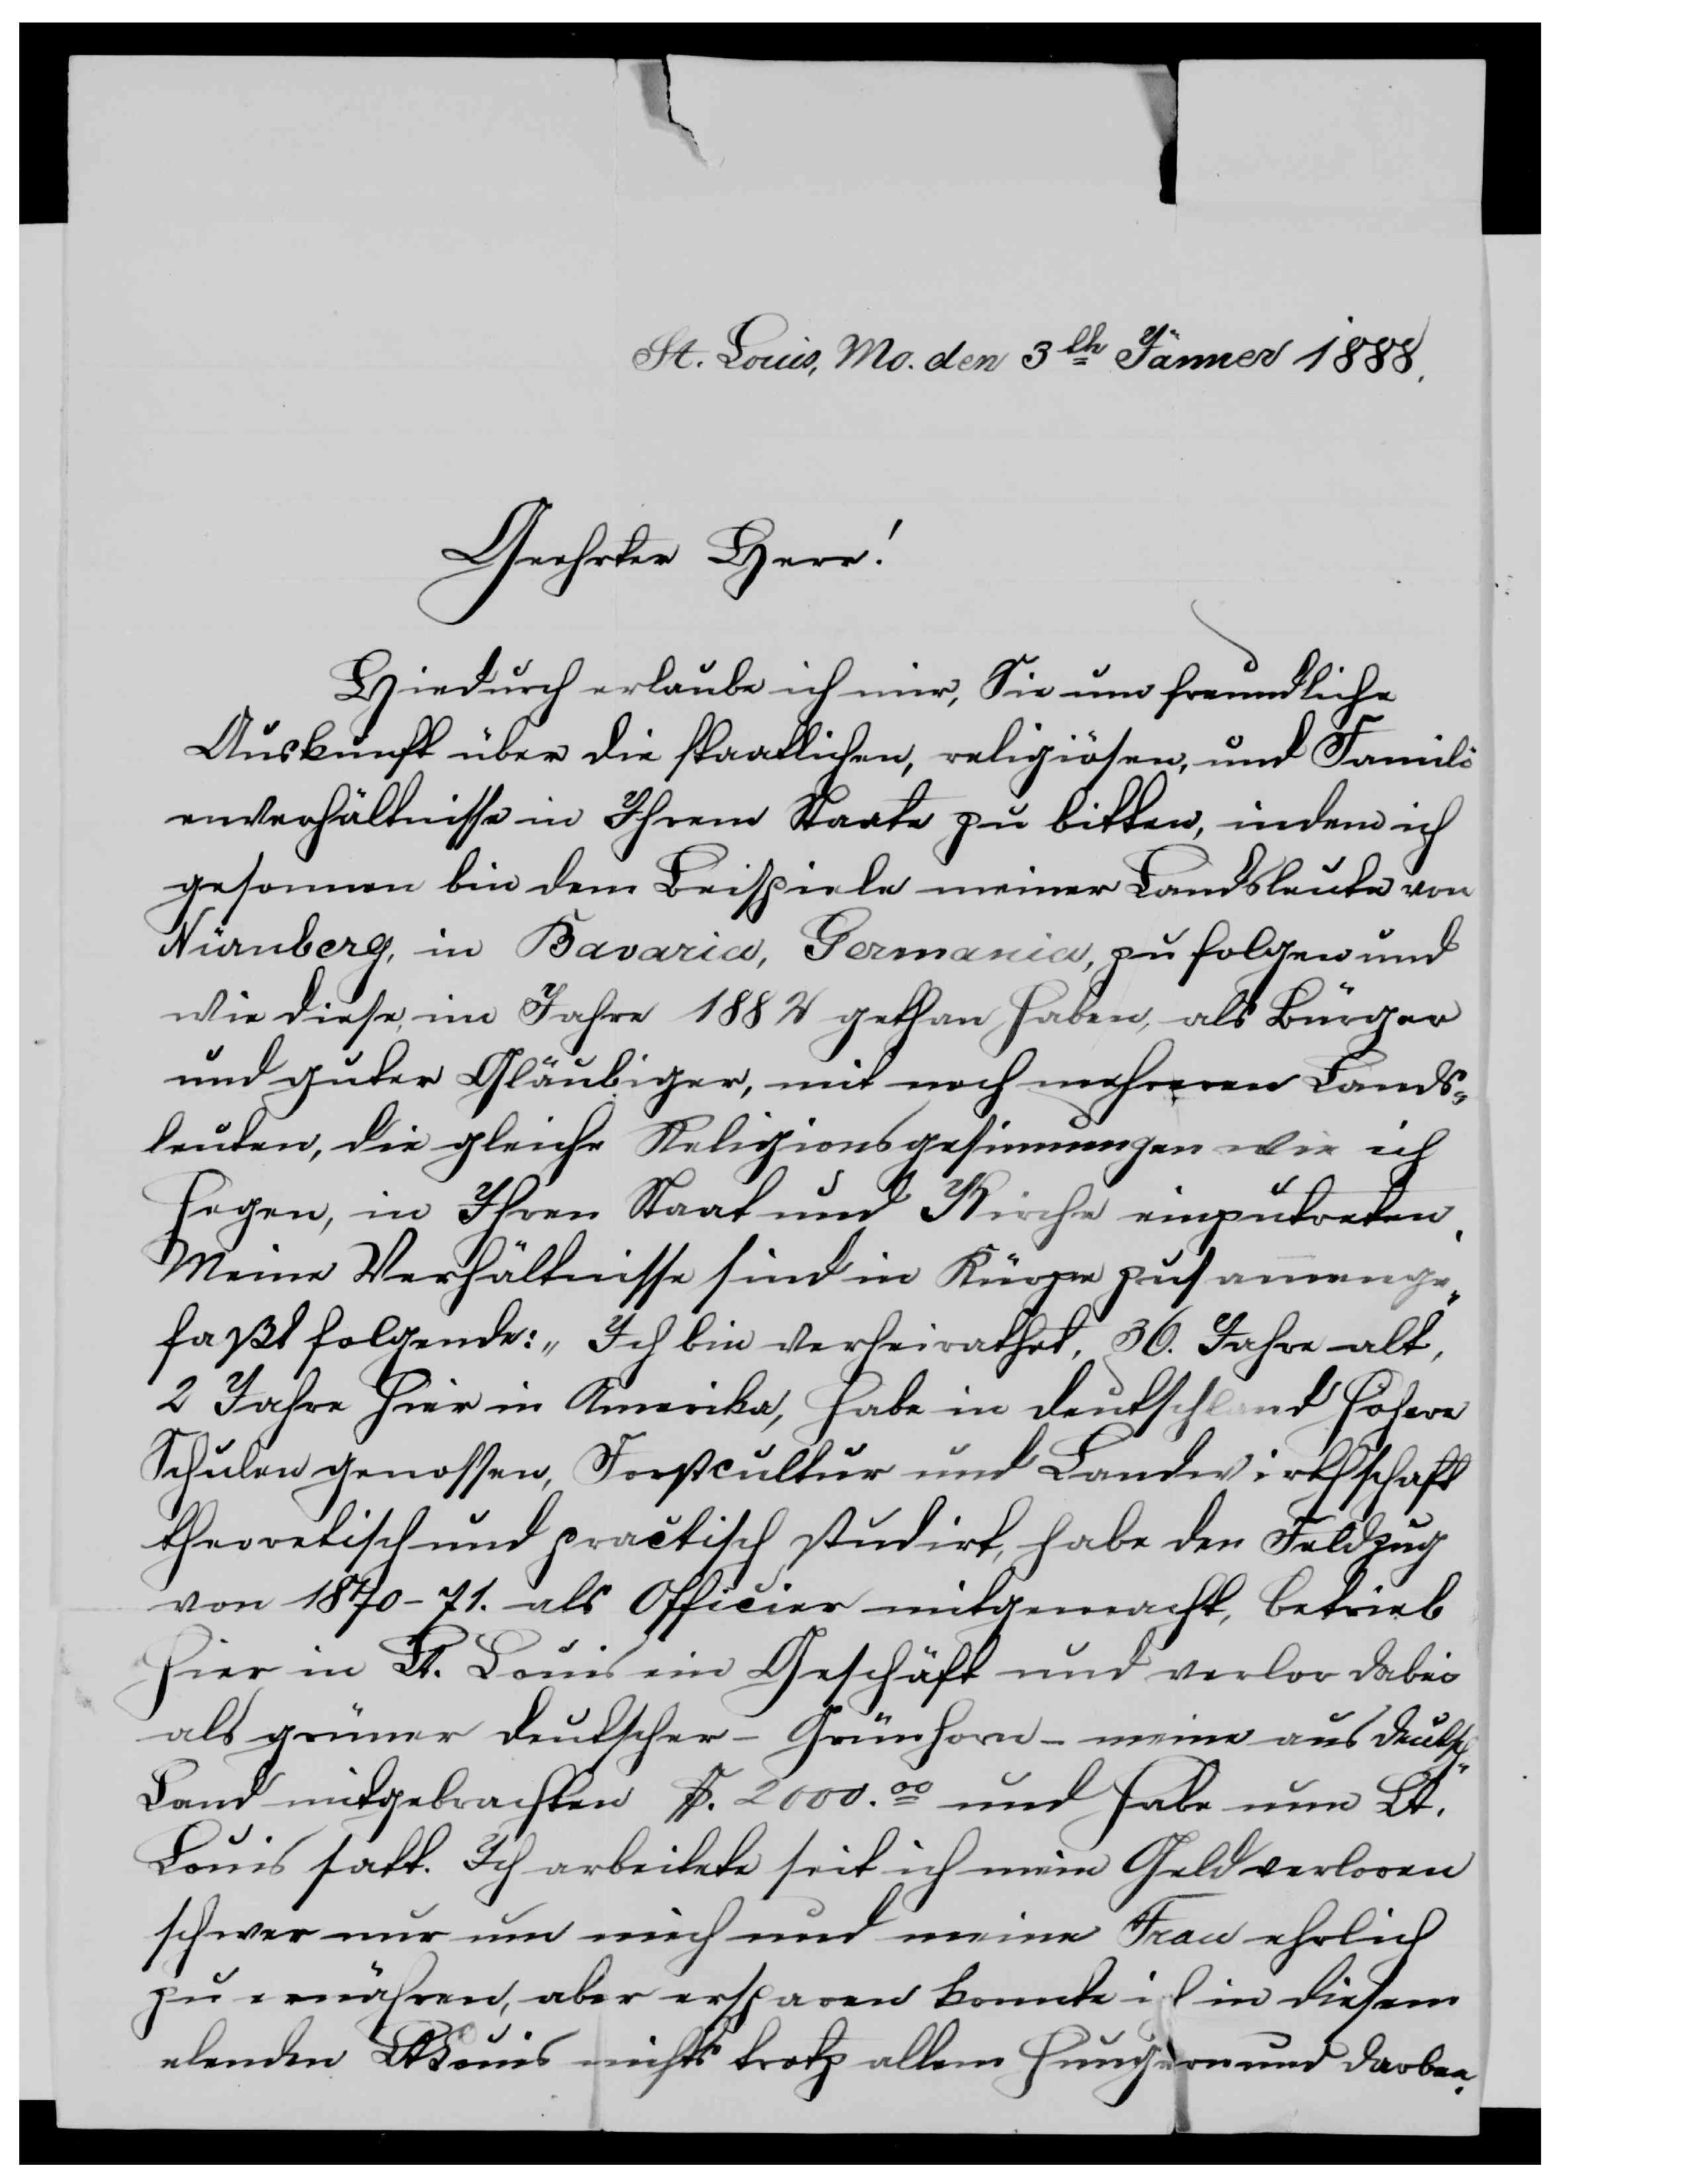 St. Louis, Mo. den 3th Jänner 1888.
Geehrter Herr!
Hiedurch erlaube ich mir, Sie um freundliche
Auskunft über die staatlichen, religiösen, und Famili
enverhältnisse in Ihrem Staate zu bitten, indem ich
gesonnen bin dem Beispiele meiner Landsleute von
Nürnberg, in Bavaria, Germania, zu folgen und
wie diese, im Jahre 1882 gethan haben, als Bürger
und guter Gläubiger, mit noch mehreren Lands„
leuten, die gleiche Religionsgesinnungen wie ich
hegen, in Ihren Staat und Kirche einzutreten.
Meine Verhältnisse sind in Kürze zusammenge„
faßt folgende: „Ich bin verheirathet, 36. Jahre alt,
2 Jahre hier in Amerika, habe in Deutschland höhere
Schulen genossen, Forstcultur und Landwirthschaft
theoretisch und practisch studirt, habe den Feldzug
von 1870-71. als Officier mitgemacht, betrieb
hier in St. Louis ein Geschäft und verlor dabei
als grüner Deutscher - Grünhorn - meine aus Deutsch„
Land mitgebrachten $. 2000.00 und habe nun St.
Louis satt. Ich arbeitete seit ich mein Geld verloren
schwer nur um mich und meine Frau ehrlich
zu ernähren, aber ersparen konnte ich in diesem
elenden St Louis nichts trotz allem Hungern und Darben.